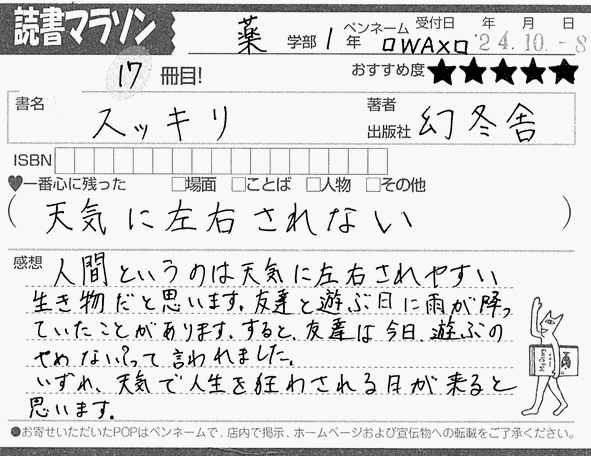 読書マラソン
薬 学部 1 年 ペンネーム ▢WA×▢ 受付日 年 月 日 '24.10.-8
17 冊目! おすすめ度★★★★★
書名 スッキリ 著者 出版社 幻冬舎
ISBN
♥一番心に残った □場面 □ことば □人物 □その他
(天気に左右されない)
感想 人間というのは天気に左右されやすい
生き物だと思います。友達と遊ぶ日に雨が降っ
ていたことがあります。すると、友達は今日、遊ぶの
やめない?って言われました。
いずれ、天気で人生を狂わされる日が来ると
思います。
●お寄せいただいたPOPはペンネームで、店内で掲示、ホームページおよび宣伝物への転載をご了承ください。